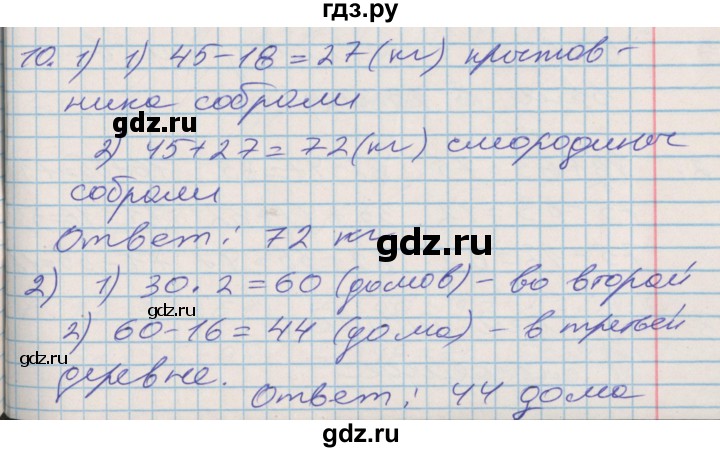 гдз.ру
10. 1) 1) 45-18=27(кг) крыжов-
ника собрали
gdz.ru
2) 45+27=72(кг) смородины
собрали
gdz.ru
Ответ: 72 кг
gdz.ru
2) 1) 30.2=60 (домов) - во второй
gdz.ru
2) 60-16=44 (дома) - в третьей
gdz.ru
деревне.
Ответ: 44 дома
gdz.ru